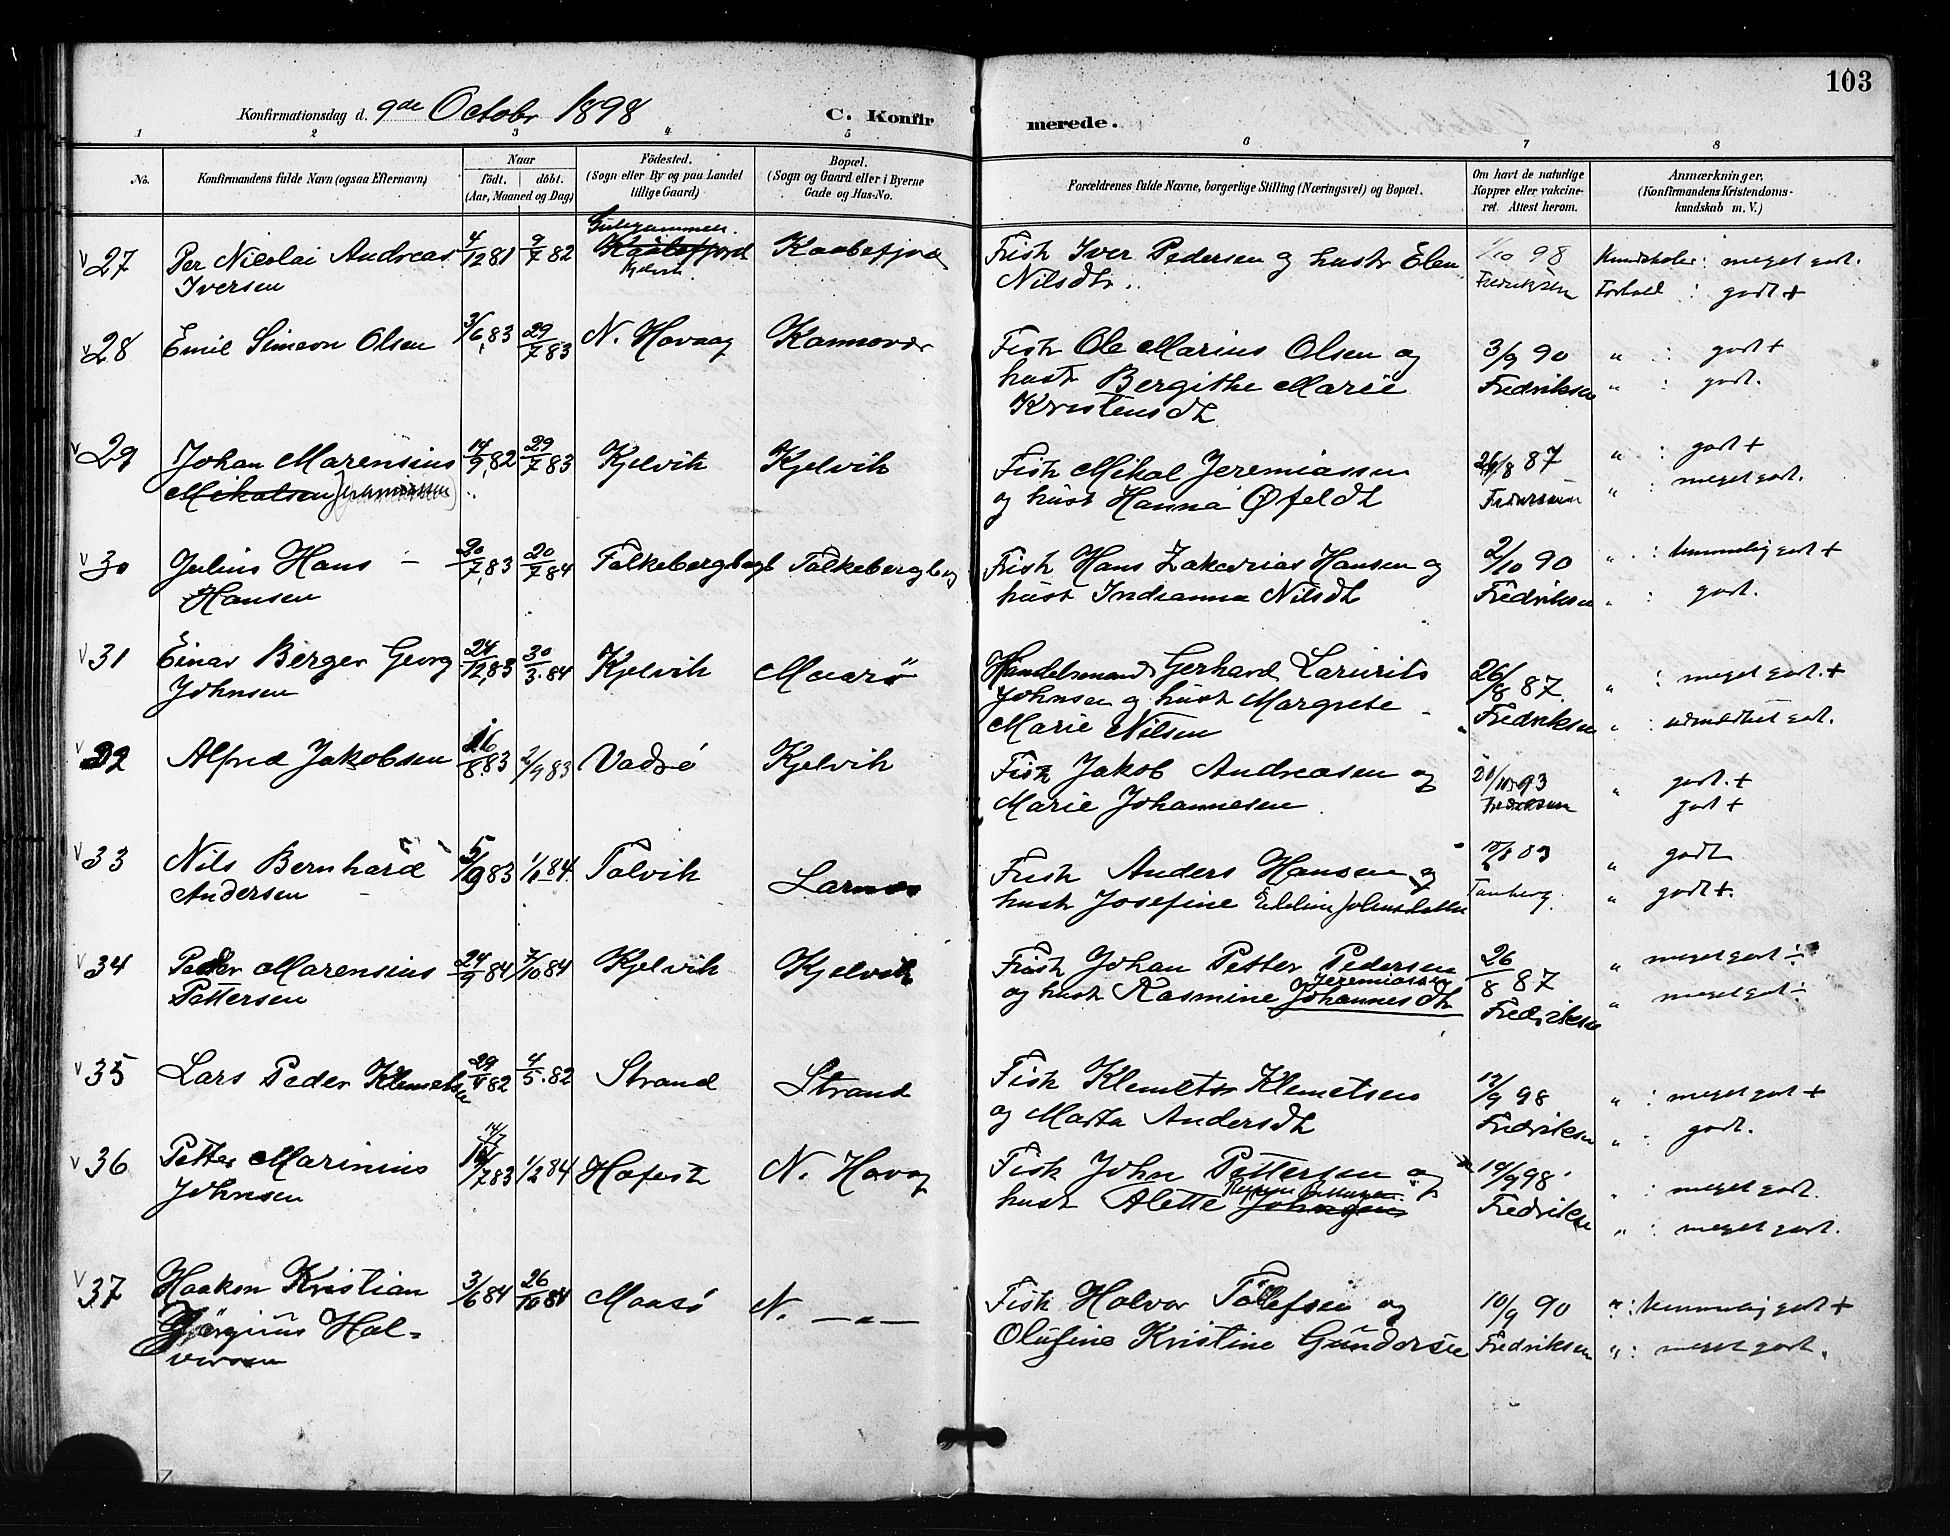 103
Konfirmationsdag d. 9de Octobr 1898 C. Konfirmerede.
1 2 3 4 5 6 7 8
No. Konfirmandens fulde Navn (ogsaa Efternavn) Naar födt. döbt. (Aar, Maaned og Dag) Födested. (Sogn eller By og paa Landet tillige Gaard) Bopæl. (Sogn og Gaard eller i Byerne Gade og Hus-No. Forældrenes fulde Navne, borgerlige Stilling (Næringsvei) og Bopæl. Om havt de naturlige Kopper eller vakcineret. Attest herom. Anmærkninger, (Konfirmandens Kristendomskundskab m. V.)
27 Per Nicolai Andreas 4/12 81 9/7 82 Kaafjord Kjelvik Kaabefjord Fisk Iver Pedersen og hustr Elen 1/10 98 Kundskaber: meget godt.
Iversen Nilsdtr. Fredriksen Forhold : godt +
28 Emil Simeon Olsen 3/6 83 29/7 83 N. Havaag Kamøvær Fisk Ole Marius Olsen og 3/9 90 " : godt +
hust Bergithe Marie Fredriksen " : godt.
Kristensdt
29 Johan Marensius 14/9 82 29/7 83 Kjelvik Kjelvik Fisk Mikal Jeremiassen 26/8 87 " : godt +
Mikalsen (Jeremiassen) og hust Hanna Øfeldt Fredriksen " : meget godt.
30 Julius Hans – 20/7 83 20/7 84 Falkebergbugt Falkebergbug Fisk Hans Zakarias Hansen og 2/10 90 " : temmelig godt +
Hansen hust Indianna Nilsdt Fredriksen " : godt.
31 Einar Berger Georg 24/12 83 30/3 84 Kjelvik Maasö Handelsmand Gerhard Laurits 26/8 87. " : meget godt. +
Johnsen Johnsen og hust Margrete Fredriksen " : udmærket godt.
Marie Nilsen
32 Alfred Jakobsen 16/8 83 2/9 83 Vadsö Kjelvik Fisk Jakob Andreasen og 20/10 93 " godt. +
Marie Johannesen Fredriksen godt +
33 Nils Bernhard 5/9 83 1/1 84. Talvik Sarnes Fisk Anders Hansen og " godt
Andersen hust Josefine Edeline Johnsdatter Tanberg. " godt +.
34 Petter Marensius 24/9 84 7/10 84 Kjelvik Kjelvik Fisk Johan Petter Pedersen 26/8 87 " meget godt ÷
Pettersen og hust Rasmine Johannesdt Jeremiassen Fredriksen " meget godt ÷
35 Lars Peder Klemetsen 29/4 82 4/5. 82 Strand Strand Fisk Klemet Klemetsen 12/9 98 " : meget godt +
og Marta Andersdt Fredriksen " : godt.
36 Petter Marinius 14/7 83 1/2 84 Hafest N. Havag Fisk John Pettersen og 14/9 98 " : meget godt.
Johnsen hust Alette Johnsen Fredriksen " : meget godt.
37 Haakon Kristian 3/6 84 26/10 84 Maasö N. –"– Fisk Halvor Tollefsen og 10/9 90 " : temmelig godt +
Jörginus Hal- Olufine Kristine Gundersen Fredriksen " : meget godt.
vorsen